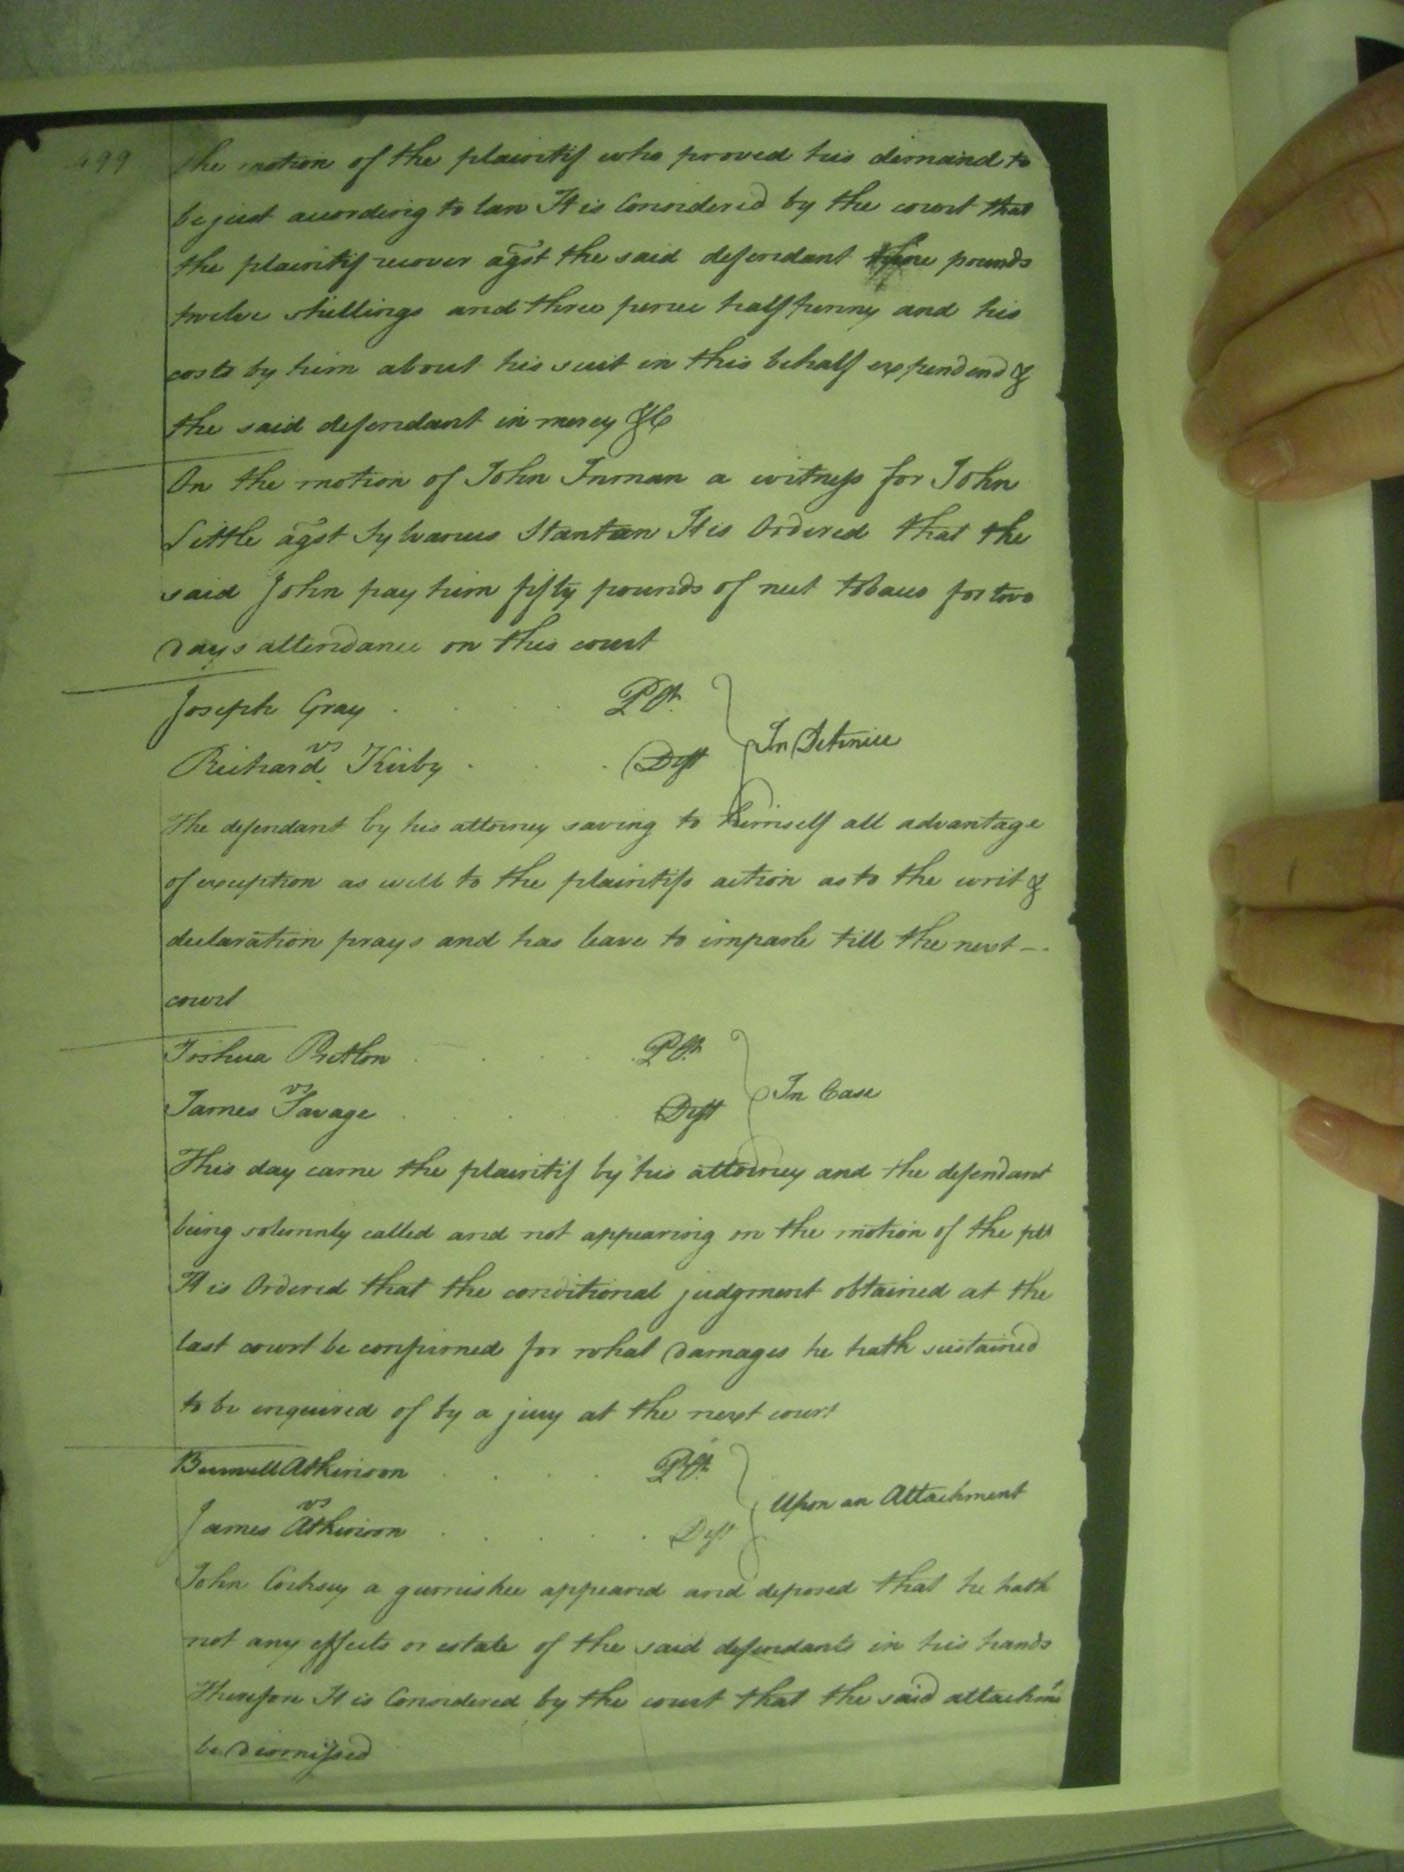 499
the motion of the plaintif who proved his demand to
be just according to law It is Considered by the court that
the plaintif recover agst the said defendant pounds
twelve shillings and three pence halfpenny and his
costs by him about his suit in this behalf expended &
the said defendant in mercy &C
On the motion of John Inman a witness for John
Little agst Sylvanus Stantan It is Ordered that the
said John pay him fifty pounds of nett tobacco for two
days attendance on this court
Joseph Gray . . . Plt
vs
Richard Kirby . . . Deft
In Detinue
The defendant by his attorney saving to himself all advantage
of exception as well to the plaintifs action as to the writ &
declaration prays and has leave to imparle till the next -
court
Joshua . . . Plt
vs
James Savage . . . Deft
In Case
This day came the plaintif by his attorney and the defendant
being solemnly called and not appearing on the motion of the plt
It is Ordered that the conditional judgment obtained at the
last court be confirmed for what damages he hath sustained
to be enquired of by a jury at the next court
Burwell Atkinson . . . Plt
vs
James Atkinson . . . Deft
Upon an Attachment
John a garnishee appeared and deposed that he hath
not any effects or estate of the said defendants in his hands
Therefore It is Considered by the court that the said attachmt
be dismissed